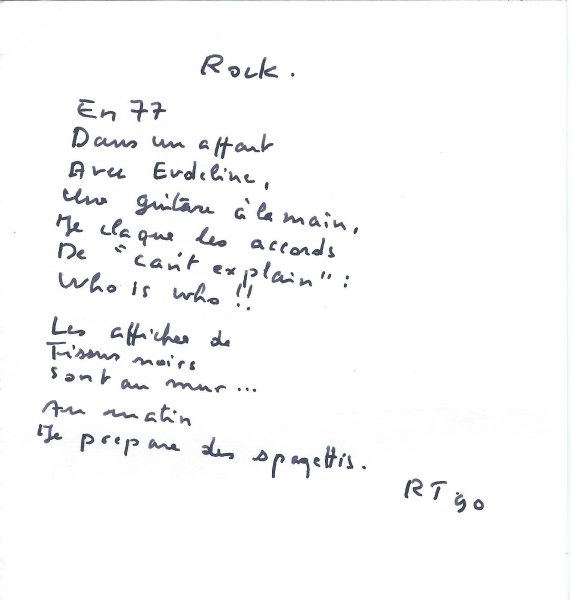 Rock.
En 77
Dans un appart
Avec Evdeline,
Une guitare à la main,
Je claque les accords
De "can't explain" :
Who is who !!
Les affiches de
Tissus noirs
sont au mur...
Au matin
Je prepare des spagettis.
RT 90